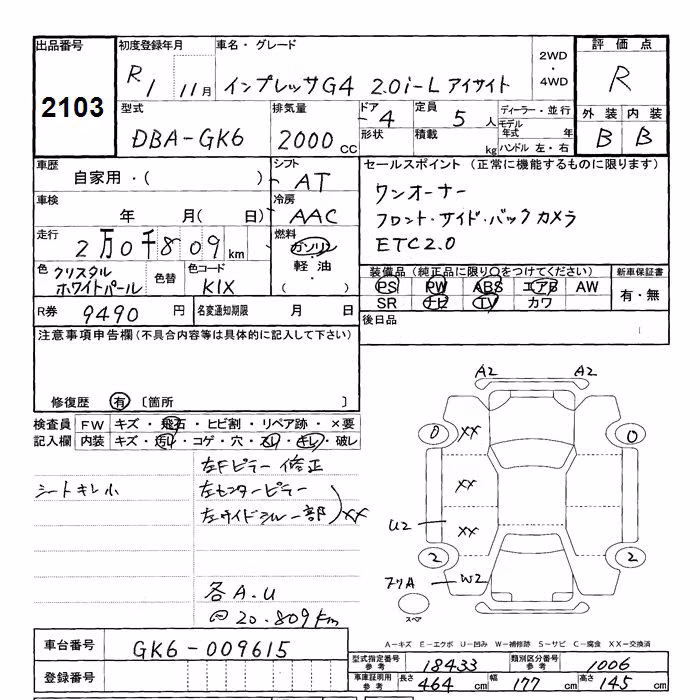 出品番号
2103
初度登録年月
R1 11月
車名・グレード
インプレッサG4 2.0i-L アイサイト
2WD
・
4WD
評価点
R
外装 内装
B B
型式
DBA-GK6
排気量
2000 cc
ドア
4
形状
定員
5 人
積載
kg
ディーラー・並行
モデル年式 年
ハンドル 左・右
車歴
自家用・( )
シフト
AT
セールスポイント (正常に機能するものに限ります)
ワンオーナー
フロント・サイド・バックカメラ
ETC2.0
車検
年 月( 日)
冷房
AAC
走行
2万0千809km
燃料
ガソリン
・
軽油
( )
色
クリスタル
ホワイトパール
色替
色コード
K1X
装備品 (純正品に限り○をつけてください)
PS PW ABS エアB AW
SR ナビ TV カワ
新車保証書
有・無
R券
9490 円
名変通知期限
月 日
後日品
注意事項申告欄 (不具合内容等は具体的に記入して下さい)
修復歴 有 〔箇所 〕
検査員
記入欄
FW キズ・飛石・ヒビ割・リペア跡・×要
内装 キズ・汚レ・コゲ・穴・スレ・キレ・破レ
シートキレ小
左Fピラー 修正
左センターピラー
左サイドシル一部 XX
各A.U
20.809km
A2 A2
0 XX 0
XX
U2 XX
2 2
フリA W2
スペア
A-キズ E-エクボ U-凹み W-補修跡 S-サビ C-腐食 XX-交換済
車台番号
GK6-009615
登録番号
型式指定番号
参考
18433
類別区分番号
参考
1006
車庫証明用
参考
長さ 464 cm
幅 177 cm
高さ 145 cm